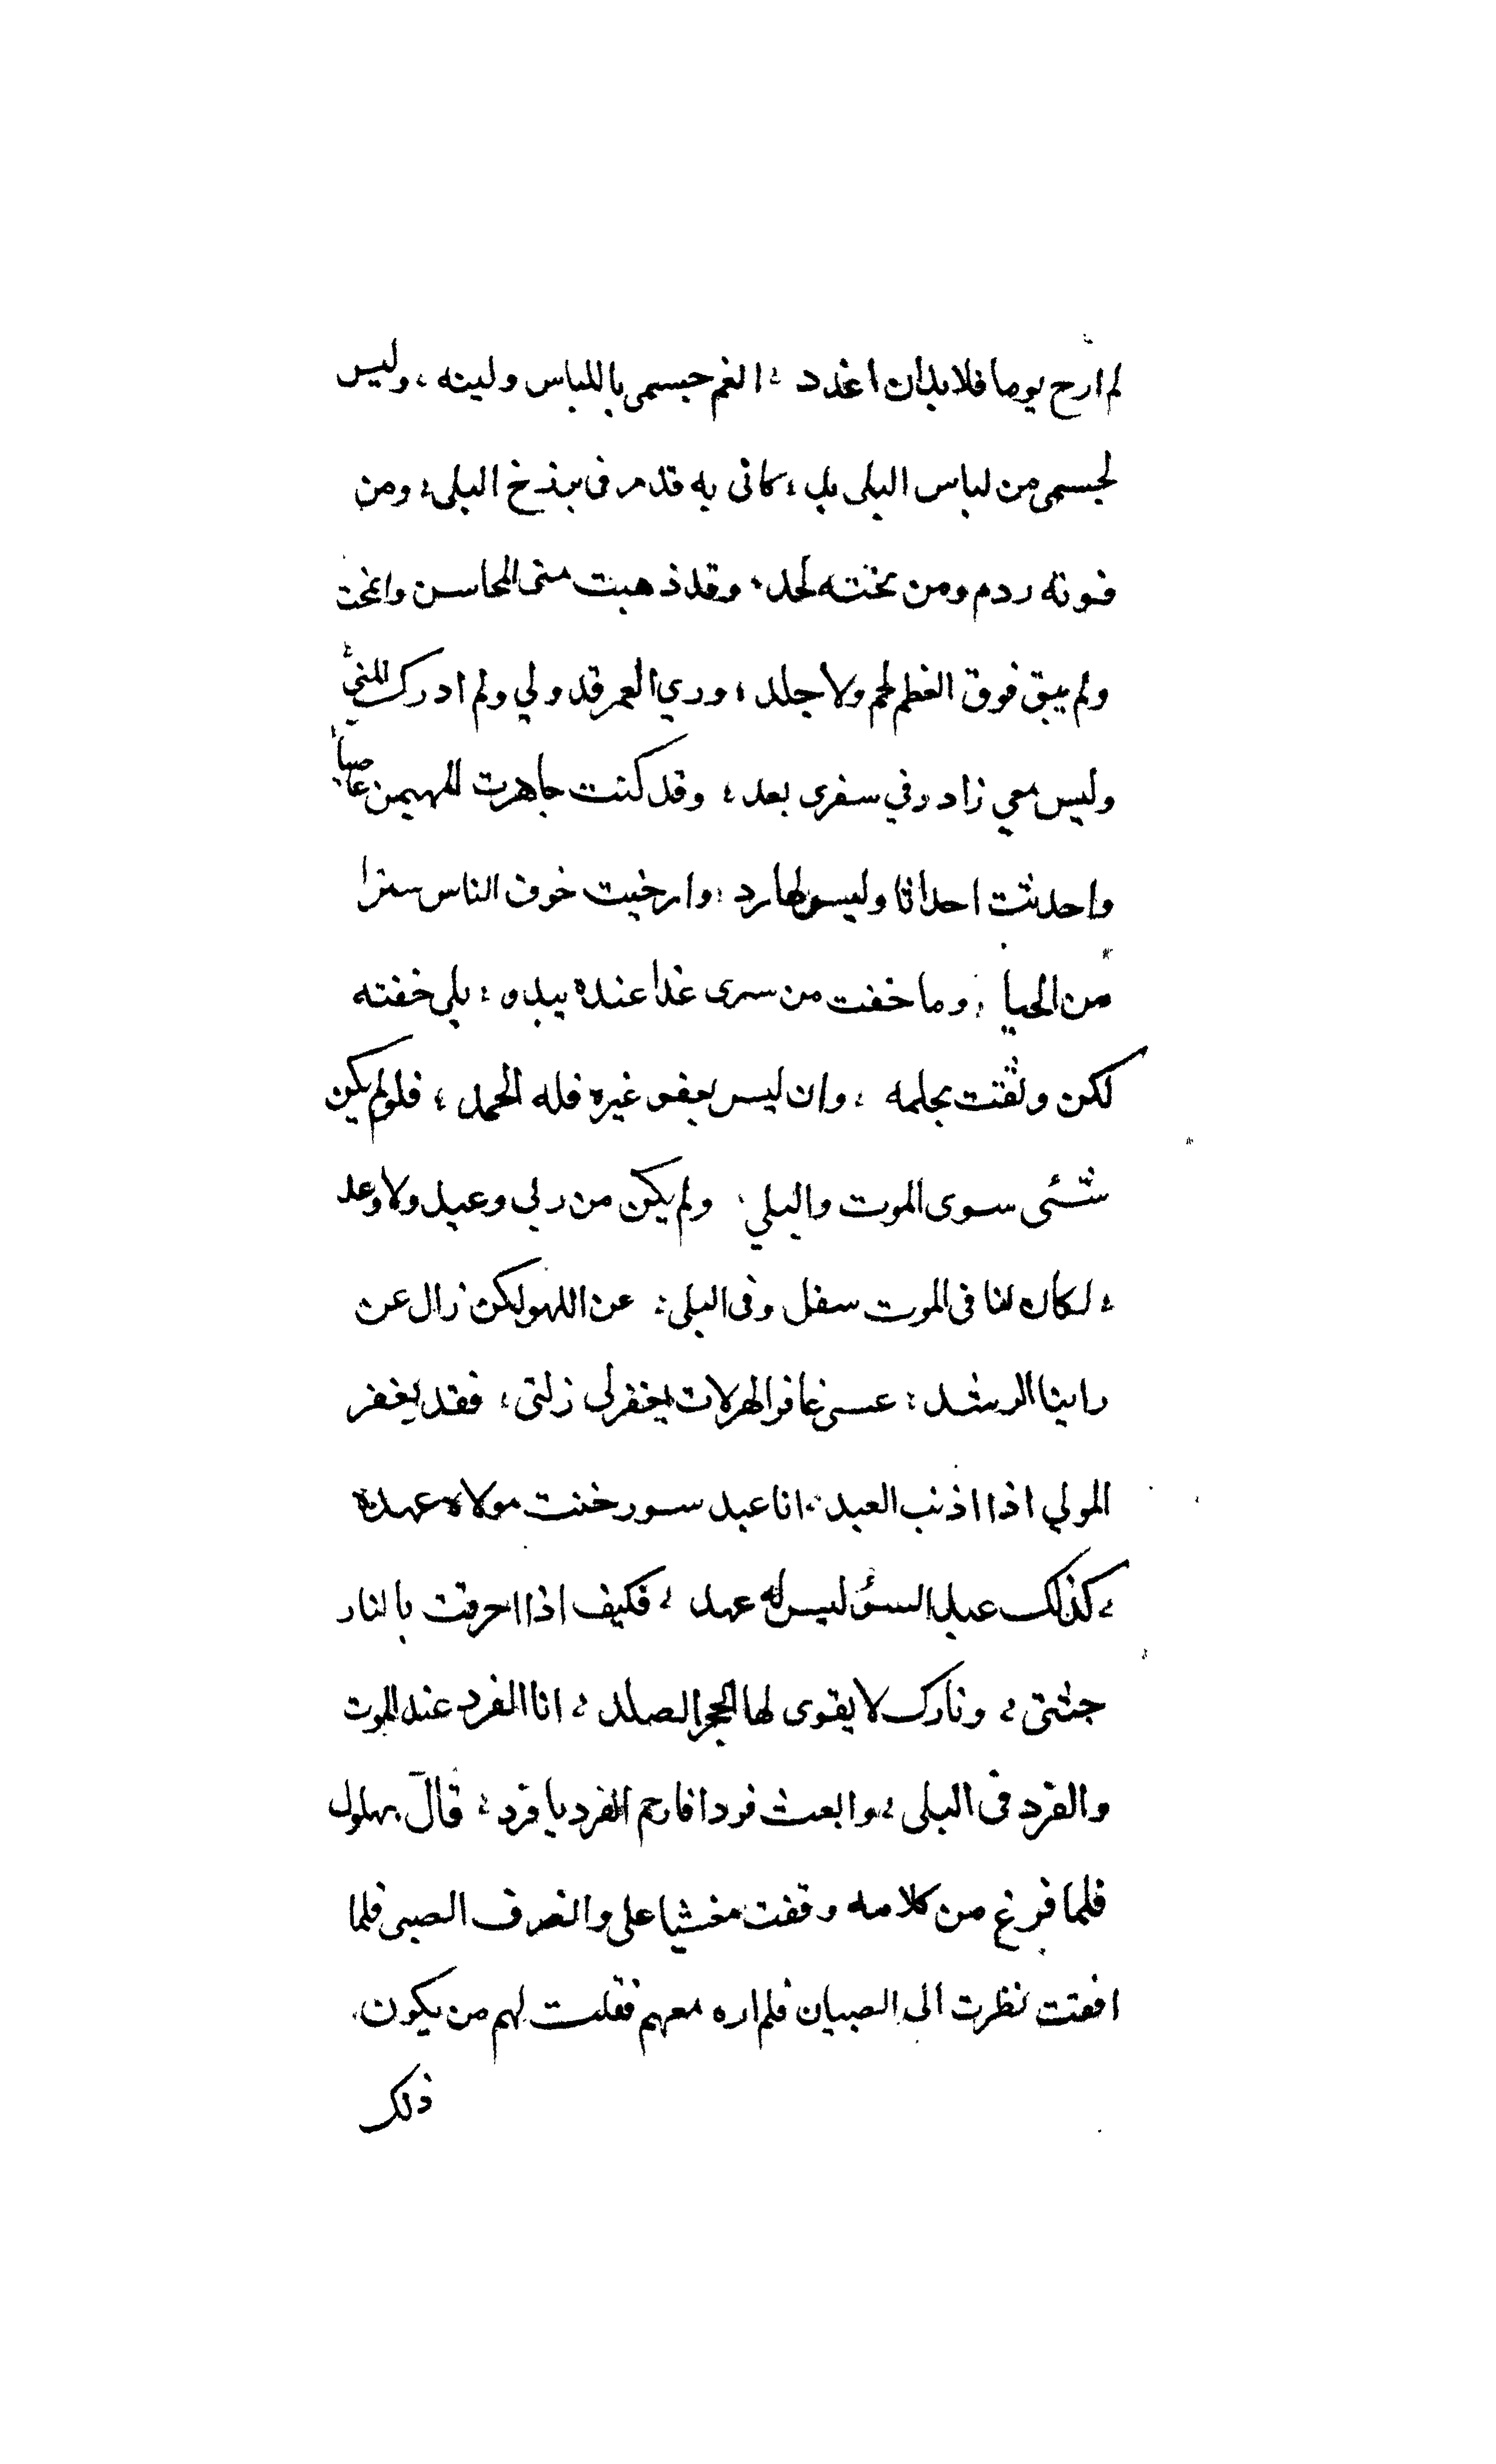 لم ارح يوما فلابد ان اغدد ؛ انعم جسمى باللباس ولينه ، وليس
لجسمى من لباس البلى بد ؛ كانى به قد مر فى برزخ البلى ؛ ومن
فوقه ردم ومن تحته لحد ؛ وقد ذهبت منى المحاسن وانمحت
ولم يبق فوق العظم لحم ولا جلد ؛ وري العمر قد ولي ولم ادرك المني
وليس معي زاد وفي سفرى بعد ؛ وقد كنت جاهرت المهيمن عاصيا
واحدثت احداثا وليس لها رد ؛ وارخيت خوف الناس سترا
من الحيا ؛ وما خفت من سرى غدا عنده يبدو ؛ بلى خفته
لكن وثقت بحلمه ، وان ليس يعفو غيره فله الحمد ؛ فلو لم يكن
شئى سوى الموت والبلي ؛ ولم يكن من ربي وعيد ولا وعد
؛ لكان لنا فى الموت سغل وفى البلى ؛ عن اللهو لكن زال عن
راينا الرشد ؛ عسى غافر الزلات يغفر لى زلتى ؛ فقد يغفر
المولي اذا اذنب العبد ؛ انا عبد سور خنت مولاه عهده
؛ كذلك عبد السوء ليس له عهد ؛ فكيف اذا احرقت بالنار
جثتى ؛ ونارك لا يقوى لها الحجر الصلد ؛ انا الفرد عند الموت
والفرد فى البلى ؛ وابعث فردا فارحم الفرد يا فرد ؛ قال بهلول
فلما فرغ من كلامه وقفت مغشيا على وانصرف الصبى فلما
افقت نظرت الى الصبيان فلم اره معهم فقلت لهم من يكون
ذلك